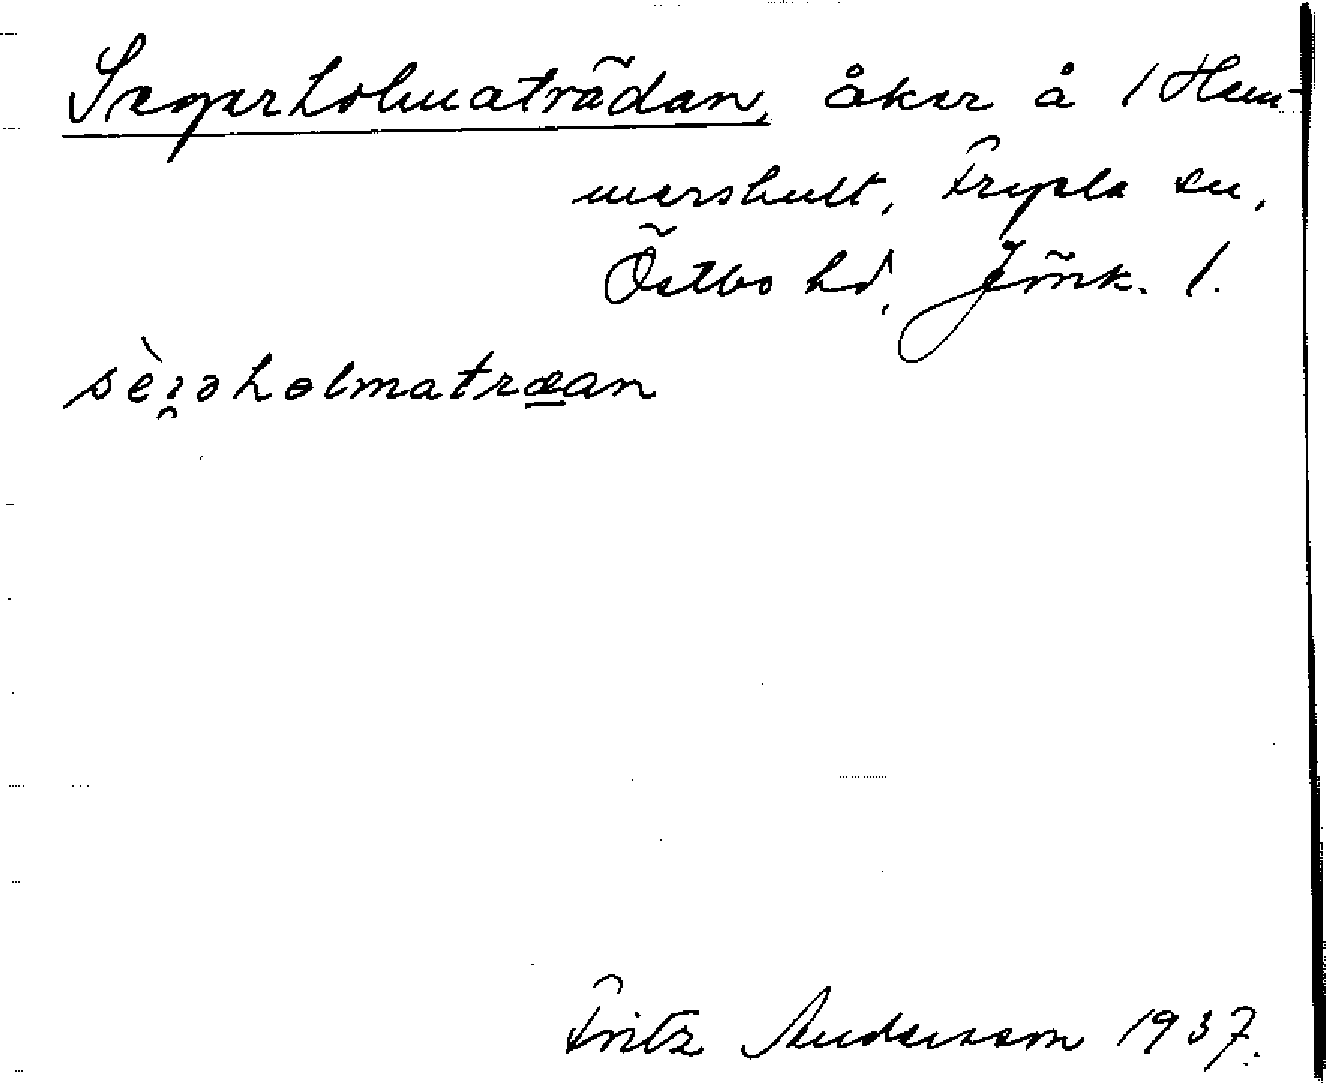 Segerholmaträdan, åker å 1 Hem-
mershult, Fryele sn,
Östbo hd, Jönk. l.
sèıəholmatræan
Fritz Andersson 1937.